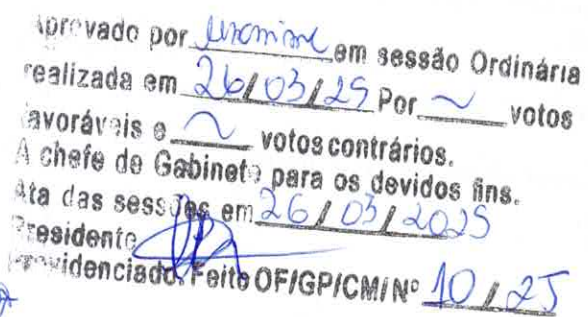 Aprovado por unânime em sessão Ordinária
realizada em 26/03/25 Por ~ votos
favoráveis e ~ votos contrários.
A chefe de Gabinete para os devidos fins.
Ata das sessões em 26/03/2025
Presidente
Providenciado. Feito OF/GP/CM/Nº 10/25